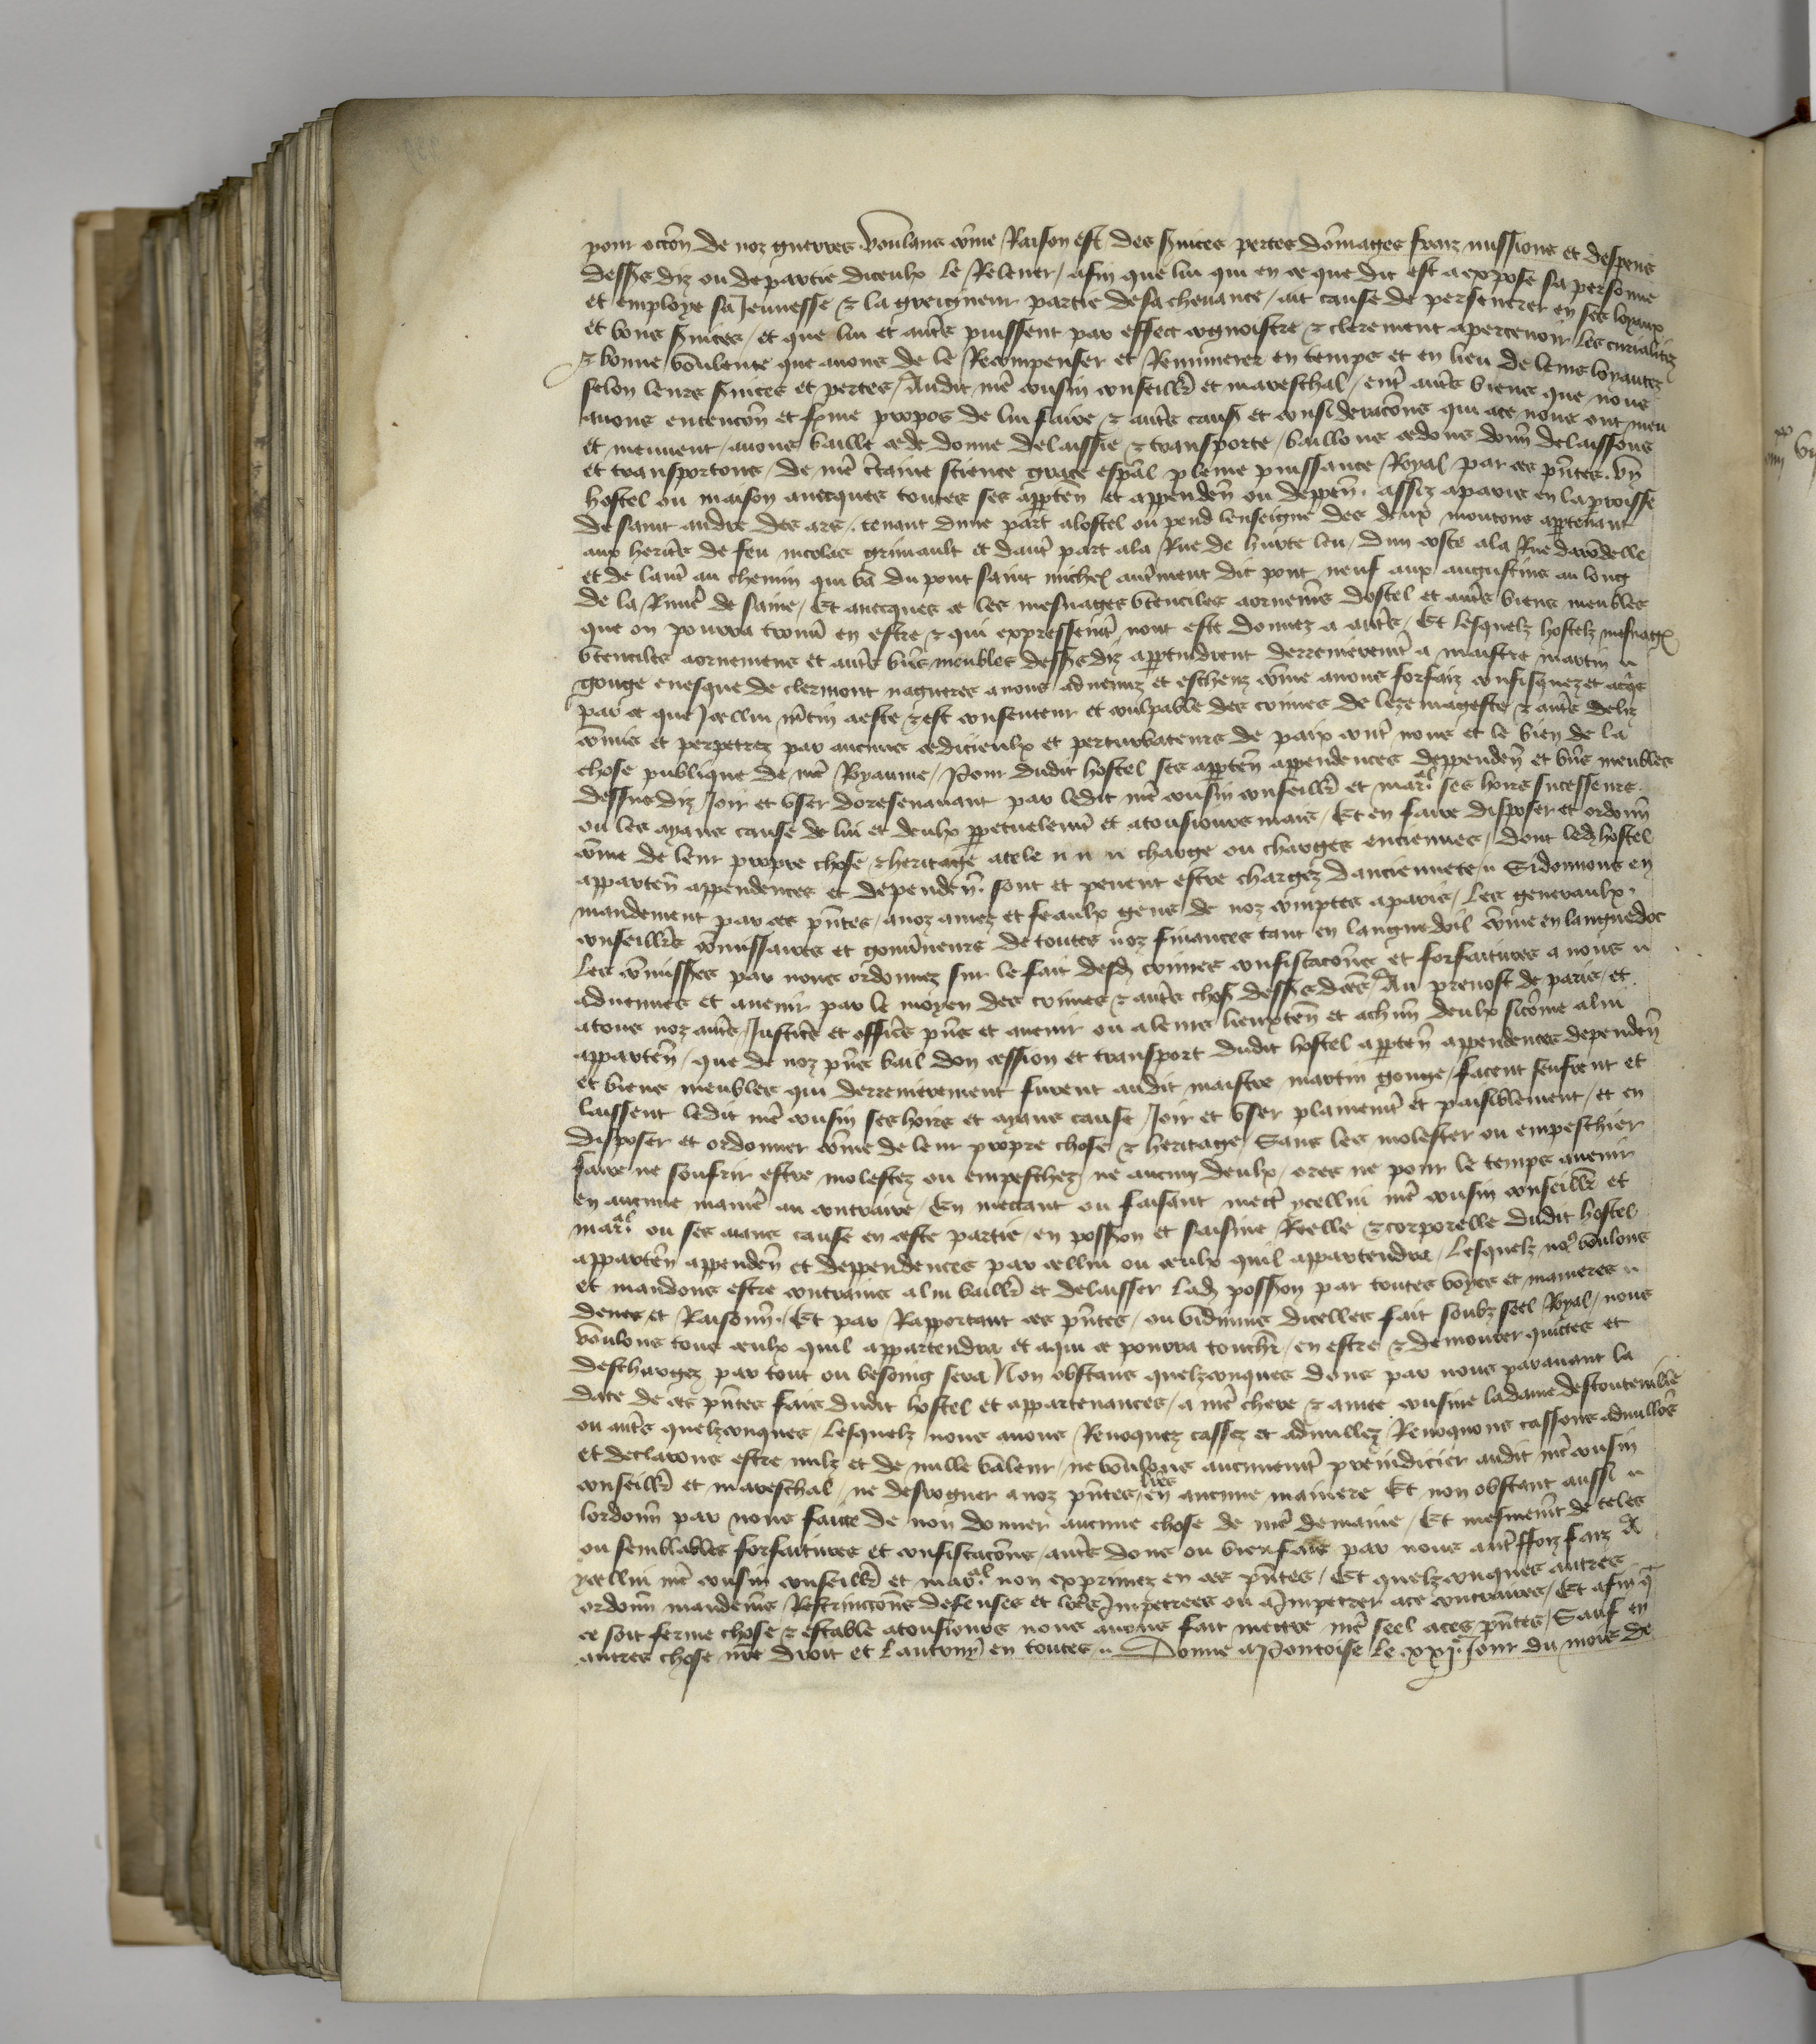 pour occōn de noz guerres. Voulans cōme Raison est des ſuices pertes dōmages fraiz missions et despens
dessusdiz ou de partie diceulx le Relever / afin que lui qui en ce que dit est a expose sa personne
et employe sa Jeunesse & la greigneur partie de sa chevance / ait cause de perseverer en ses loyaux
et bons ſuices / et que lui et autˢ puissent par effect cognoistre & clerement apercevoir les curialitez
& bonne voulente que avons de le Recompenser et Remunerer en temps et en lieu de leurs loyautez
selon leurs ſuices et pertes / Audit nrē cousin conseillr̄ et mareschal / entr̄ autˢ biens que nous
avons entencōn et ferme propos de lui faire & autˢ causes et consideracōns qui a ce nous ont meu
et meuvent / avons baille cede donne delaissie & transporte / baillons cedons donn̄ delaissons
et transportons / de nrē c̄taine science grace esp̄al pleine puissance Royal par ces pn̄tes. vn̄
hostel ou maison avecques toutes ses app̄ten̄ et appenden̄ ou deppen̄. assiz a paris en la parroisse
de saint andre des ars / tenant dune part a lostel ou pend lenseigne des deux moutons app̄tenant
aux heritˢ de feu nicolas grimault et dautr̄ part a la Rue de hurte leu / dun coste a la Rue darōdelle
et de lautr̄ au chemin qui va du pont saint michel autr̄ment dit pont neuf aux augustins au long
de la Rivier̄ de saine / Et avecques ce les mesnages vtenciles aornemēs dostel et autˢ biens meubles
que on pourra trouū en estre & qui expressemēt nont este donnez a autˢ / Et lesquelz hostelz mesnages
vtenciles aornemens et autˢ biēs meubles dessusdiz app̄tindrent derrenieremēt a maistre martin
gouge evesque de clermont nagueres a nous advenuz et escheuz cōme avons forfaiz confisquez et acqˢ
par ce que Jcellui m̄tin a este & est consenteur et coulpable des crimes de leze mageste & autˢ deliz
cōmis et perpetrez par aucuns sedicieulx et perturbateurs de paix contr̄ nous et le bien de la
chose publique de nrē Royaume / Pour dudit hostel ses app̄ten̄ appendences deppenden̄ et biēs meubles
dessusdiz / Joir et vser doresenavant par ledit nrē cousin conseillr̄ et mar̄al ses hoirs successeurs.
ou les ayans cause de lui et deulx perpetuelemēt et a tousiours mais / Et en faire disposer et ordonn̄
cōme de leur propre chose & heritage a tele charge ou charges enciennes / dont led hostel
apparten̄ appendences et dependen̄. sont et pevent estre chargez danciennete. Si donnons en
mandement par ces pn̄tes / a noz amez et feaulx gens de noz comptes a paris / les generaulx.
conseillrˢ cōmissaires et gouūneurs de toutes noz finances tant en languedoil cōme en languedoc
les cōmissˢ par nous ordonnez sur le fait desd crimes confiscacōns et forfaitures a nous
advenues et avenir par le moyen des crimes & autˢ choses dessusdˢ / Au prevost de paris / et
a tous noz autˢ Justicˢ et officˢ pn̄s et avenir ou a leurs lieuxten̄ et a chūn deulx sicōme a lui
apparten̄ / que de noz pn̄s bail don cession et transport dudit hostel app̄ten̄ appendences dependen̄
et biens meubles qui derrenierement furent audit maistre martin gouge / facent seufrent et
laissent ledit nrē cousin ses hoirs et ayans cause / Joir et vser plainemēt et paisiblement / et en
disposer et ordonner cōme de leur propre chose & heritage / Sans les molester ou empeschier
faire ne soufrir estre molestez ou empeschez / ne aucun deulx / ores ne pour le temps avenir
en aucune manier̄ au contraire / En mectant ou faisant mectr̄ ycellui nrē cousin conseillr̄ et
mar̄al ou ses aians cause en ceste partie / en possession et saisine Reelle & corporelle dudit hostel
apparten̄ appenden̄ et deppendences par cellui ou ceulx quil appartendra / lesquelz noˢ voulons
et mandons estre contrains a lui baillr̄ et delaisser lad possession par toutes voyes et manieres
deues et Raisonn̄. / Et par Rapportant ces pn̄tes / ou vidimus dicelles fait soubz seel Royal / nous
voulons tous ceulx quil appartendra et a qui ce pourra touchr̄ / en estre & demourer quictes et
deschargez par tout ou besoing sera Non obstans quelzconques dons par nous paravant la
date de ces pn̄tes fais dudit hostel et appartenances / a nrē chere & amee cousine la dame destouteville
ou autˢ quelzconques / lesquelz nous avons Revoquez cassez et adnullez / Revoquons cassons adnullōs
et declarons estre nulz et de nulle valeur / ne voulons aucunemēt preiudicier audit nrē cousin
conseillr̄ et mareschal / ne desroguer a noz pn̄tes lr̄es en aucune maniere Et non obstant aussi
lordonn̄ par nous faicte de non donner aucune chose de nrē demaine / Et mesmemēt de teles
ou semblables forfaitures et confiscacōns / autˢ dons ou bienfais par nous autreffoiz faiz A
ycellui nrē cousin conseillr̄ et mar̄al non exprimez en ces pn̄tes / Et quelzconques autres
ordonn̄ mandemēs / Restrinctions defenses et lr̄es Jmpetrees ou a Jmpetrer a ce contraires / Et afin q̄
ce soit ferme chose & estable a tousiours nous avons fait mettre nrē seel a ces pn̄tes / Sauf en
autres chose nrē droit et lautruy en toutes. Donne a Pontoise le xxijᵉ Jour du mois de